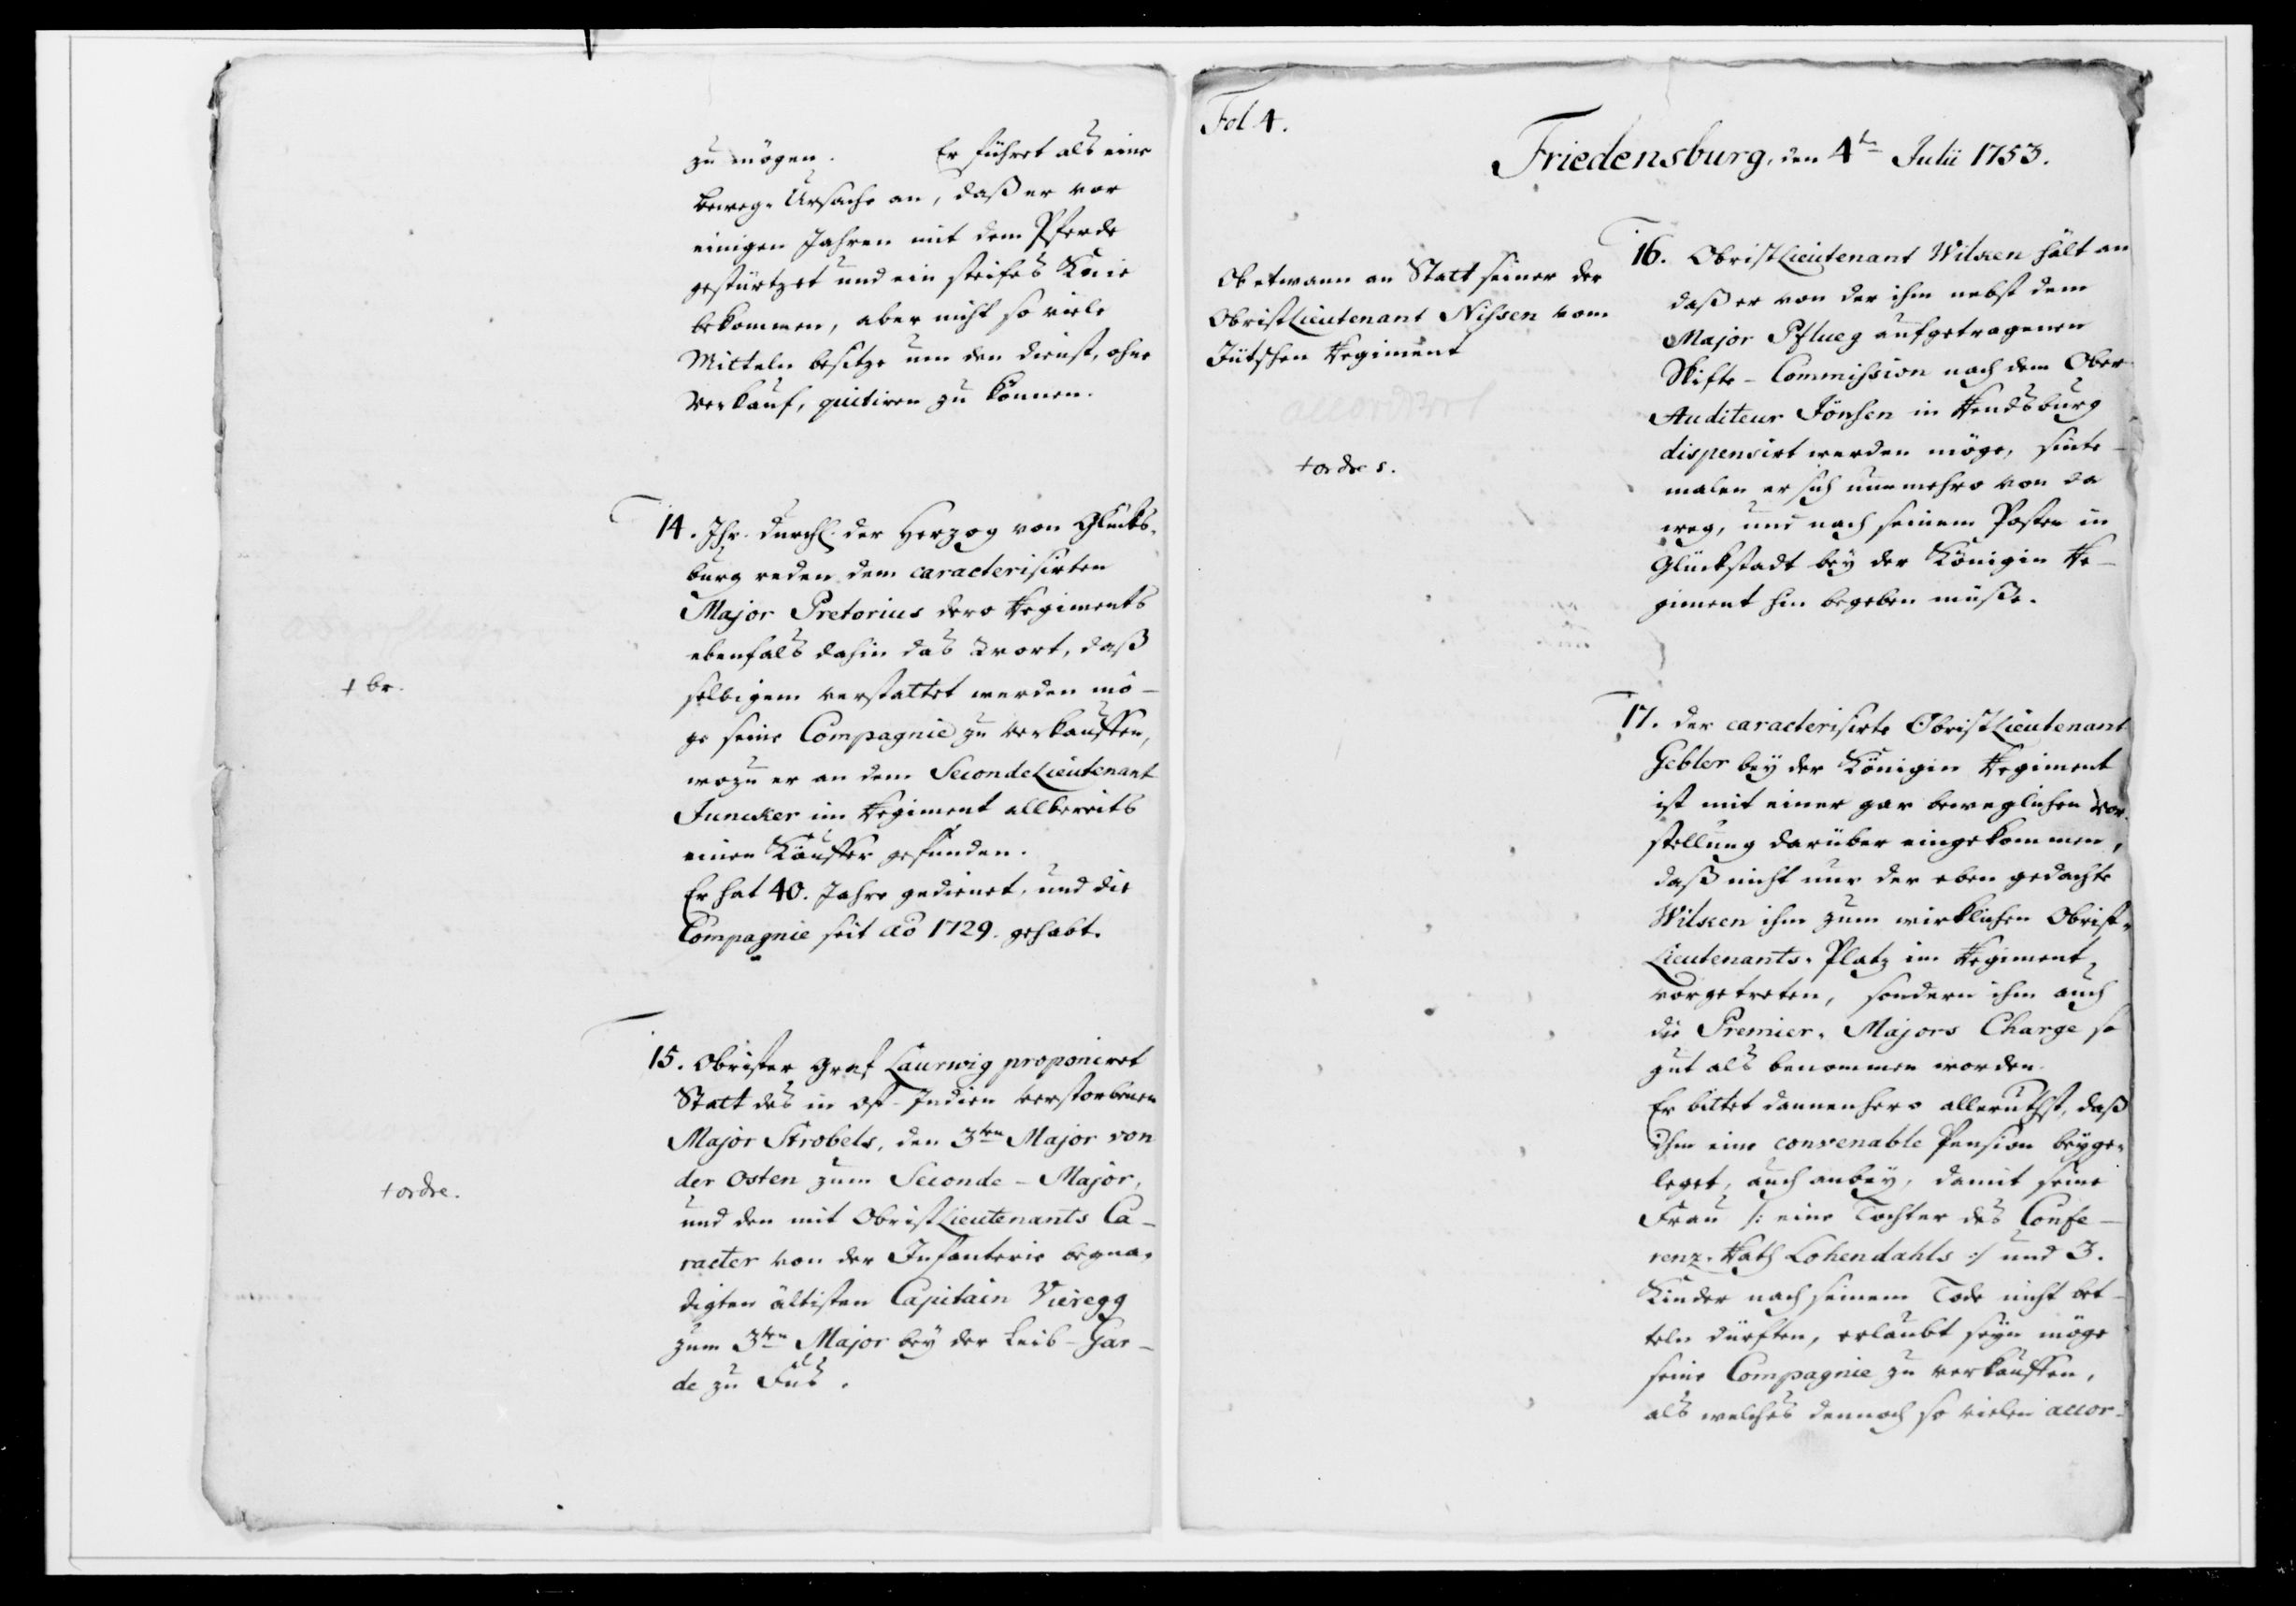 zu mögen. Er führet als eine
beweg-Ursache an, daß er vor
einigen Jahren mit dem Pferde
gestürtzet und ein steifes Knie
bekommen, aber nicht so viele
Mitteln besitze um den dienst, ohne
Verkauf, quitiren zu können.
14. Ihr. Durchl. der Herzog von Glücks-
burg reden dem caracterisirten
Major Pretorius dero Regiments
ebenfals dahin das Wort, daß
selbigem verstattet werden mö-
ge seine Compagnie zu verkauffen,
wozu er an dem SecondeLieutenant
Juncker im Regiment allbereits
einen Käuffer gefunden.
Er hat 40. Jahre gedienet, und die
Compagnie seit ao 1729. gehabt.
+ br.
15. Obrister Graf Laurwig proponiret
Statt des in Ost-Indien verstorbenen
Major Strobels, den 3ten Major von
der Osten zum Seconde-Major,
und den mit ObristLieutenants Ca-
racter von der Infanterie begna-
digten ältisten Capitain Vieregg
zum 3ten Major bey der Leib-Gar-
de zu Fus.
+ ordre.
Fol 4.
Friedensburg, den 4ten Julii 1753.
Ob etwann an Statt seiner der
ObristLieutenant Nissen vom
Jütschen Regiment
+ ordre s.
16. ObristLieutenant Wilcken hält an
daß er von der ihm nebst dem
Major Pflueg aufgetragenen
Skifte-Commission nach dem Ober-
Auditeur Jönsen in Rendsburg
dispensirt werden möge, sinte-
malen er sich nunmehro von da
weg, und nach seinem Posten in
Glückstadt bey der Königin Re-
giment hin begeben müsse.
17. der caracterisirte ObristLieutenant
Gebler bey der Königin Regiment
ist mit einer gar beweglichen Vor-
stellung darüber eingekommen,
daß nicht nur der eben gedachte
Wilcken ihm zum wirklichen Obrist-
Lieutenants-Platz im Regiment
vorgetreten, sondern ihm auch
die Premier-Majors Charge so
gut als benommen worden.
Er bittet dannenhero allerunthst, daß
ihm eine convenable Pension beyge-
leget, auch anbey, damit seine
Frau /: eine Tochter des Confe-
renz-Rath Lohendahls :/ und 3.
Kinder nach seinem Tode nicht bet-
teln dürften, erlaubt seyn möge
seine Compagnie zu verkauffen,
als welches dennoch so vielen accor-